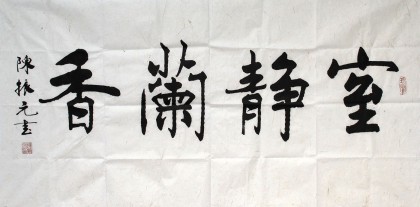 室静蘭香
陳振元書